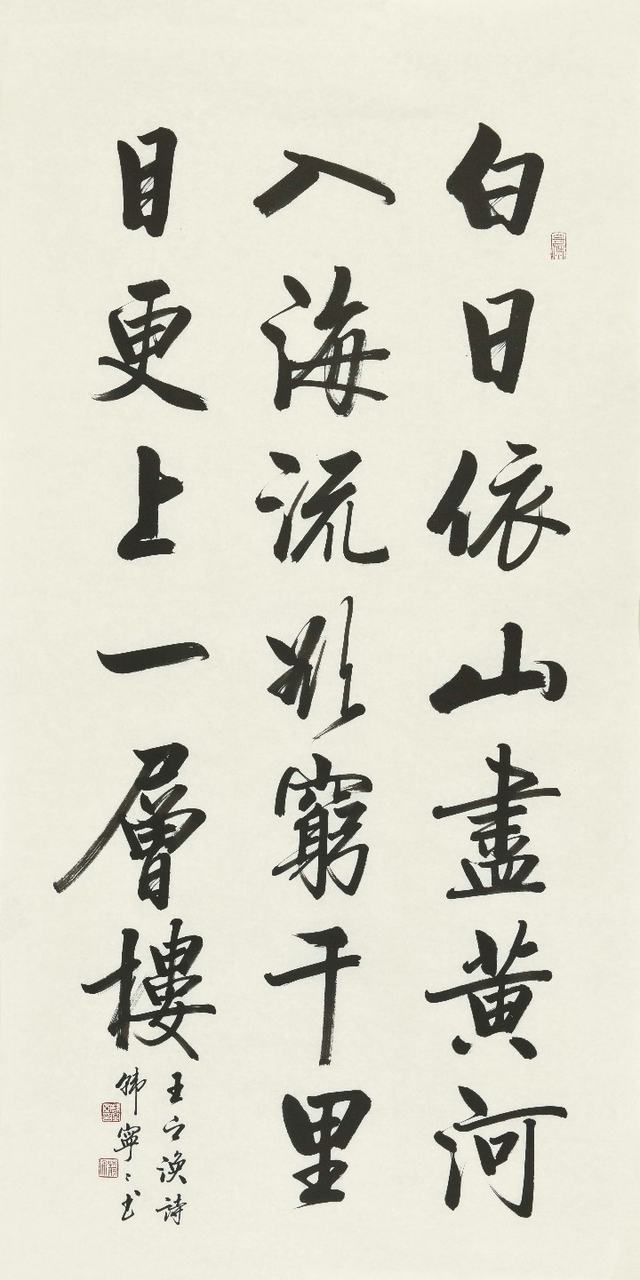 白日依山盡黄河
入海流欲窮千里
目更上一層樓
王之渙詩
韩寧〻书